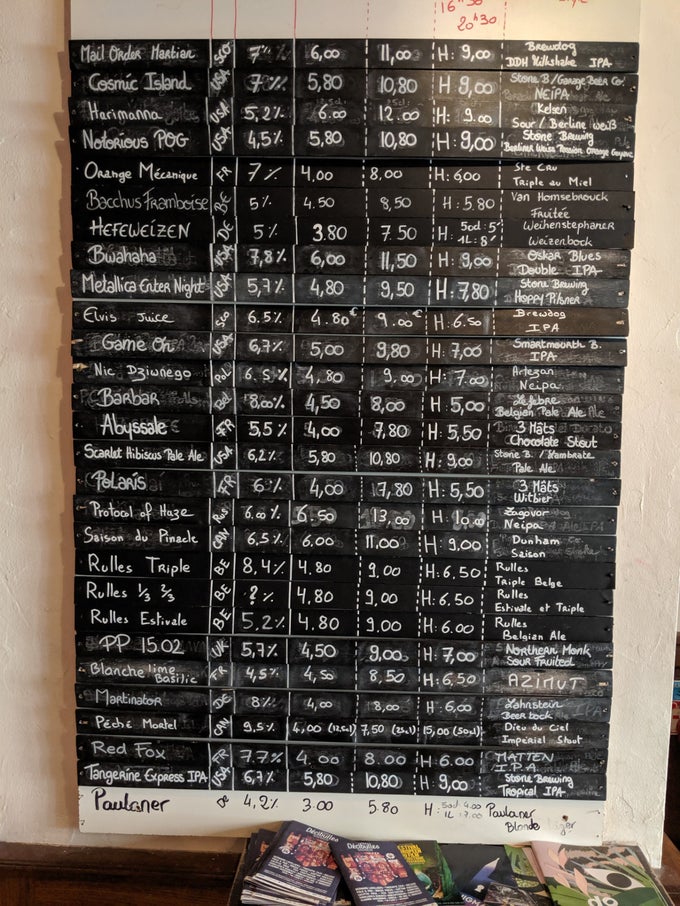 16h30
20h30
Mail Order Martian SCO 7% 6,00 11,00 H: 9,00 Brewdog
DDH Milkshake IPA
Cosmic Island USA 7% 5,80 10,80 H: 9,00 Stone B/Garage Beer Co.
NEIPA
Harimanna USA 5,2% 6.00 12.00 H: 9.00 Kelsen
Sour / Berline Weiß
Notorious POG USA 4,5% 5,80 10,80 H: 9,00 Stone Brewing
Berliner Weiss Passion Orange Goyave
Orange Mécanique FR 7% 4,00 8,00 H: 6,00 Ste Cru
Triple au Miel
Bacchus Framboise BE 5% 4.50 8,50 H: 5.80 Van Honsebrouck
Fruitée
HEFEWEIZEN DE 5% 3.80 7.50 50cl: 5€ Weihenstephaner
H: 1L: 8€ Weizenbock
Bwahaha USA 7,8% 6,00 11,50 H: 9,00 Oskar Blues
Double IPA
Metallica Enter Night USA 5,7% 4,80 9,50 H: 7,80 Stone Brewing
Hoppy Pilsner
Elvis Juice SCO 6.5% 4.80€ 9.00€ H: 6.50 Brewdog
IPA
Game On USA 6,7% 5,00 9,80 H: 7,00 Smartmouth B.
IPA
Nic Dziwnego POL 6.5% 4,80 9,00 H: 7.00 Artezan
Neipa
Barbar Bel 8,00% 4,50 8,00 H: 5,00 Lefebre
Belgian Pale Ale
Abyssale FR 5,5% 4,00 7,80 H: 5,50 3 Mâts
Chocolate Stout
Scarlet Hibiscus Pale Ale USA 6,2% 5,80 10,80 H: 9,00 Stone B./
Pale Ale
Polaris FR 6% 4,00 17,80 H: 5,50 3 Mâts
Witbier
Protocol of Haze Rus 6.00% 6.50 13,00 H: 10.00 Zagovor
Neipa
Saison du Pinacle CAN 6,5% 6.00 11.00 H: 9.00 Dunham
Saison
Rulles Triple BE 8,4% 4.80 9,00 H: 6.50 Rulles
Triple Belge
Rulles 1/3 2/3 BE ?% 4,80 9,00 H: 6.50 Rulles
Estivale et Triple
Rulles Estivale BE 5,2% 4.80 9.00 H: 6.00 Rulles
Belgian Ale
PP 15.02 UK 5,7% 4,50 9,00 H: 7,00 Northern Monk
Sour Fruited
Blanche lime FR 4,5% 4,50 8,50 H: 6,50 AZIMUT
Basilic
Martinator DE 8% 4,00 8,00 H: 6,00 Lahnstein
Beer bock
Péché Mortel CAN 9,5% 4,00 (12.5cl) 7,50 (25cl) 15,00 (50cl) Dieu du Ciel
Impérial Stout
Red Fox FR 7.7% 4.00 8.00 H: 6.00 MATTEN
I.P.A.
Tangerine Express IPA USA 6,7% 5,80 10,80 H: 9,00 Stone Brewing
Tropical IPA
Paulaner DE 4,2% 3.00 5.80 H: 50cl: 4.00 Paulaner
1L: 7.00 Blonde Lager
Décibulles
Décibulles